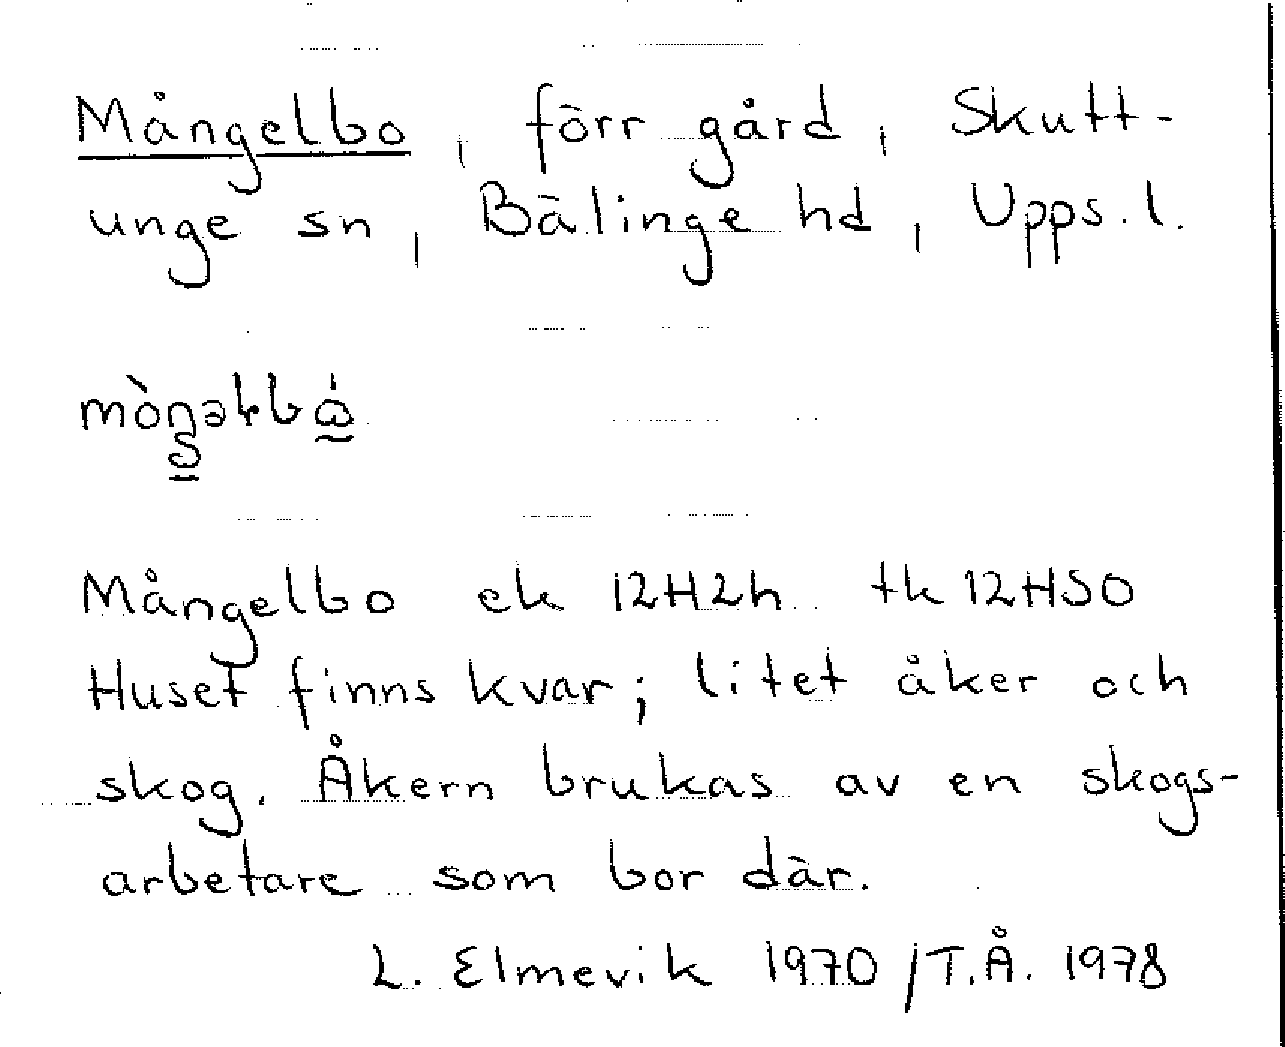 Mångelbo, förr gård, Skutt-
unge sn, Bälinge hd, Upps. l.
Mångelbo ek 12H2h tk 12HSO
Huset finns kvar; litet åker och
skog. Åkern brukas av en skogs-
arbetare som bor där.
L. Elmevik 1970 /T.Å. 1978